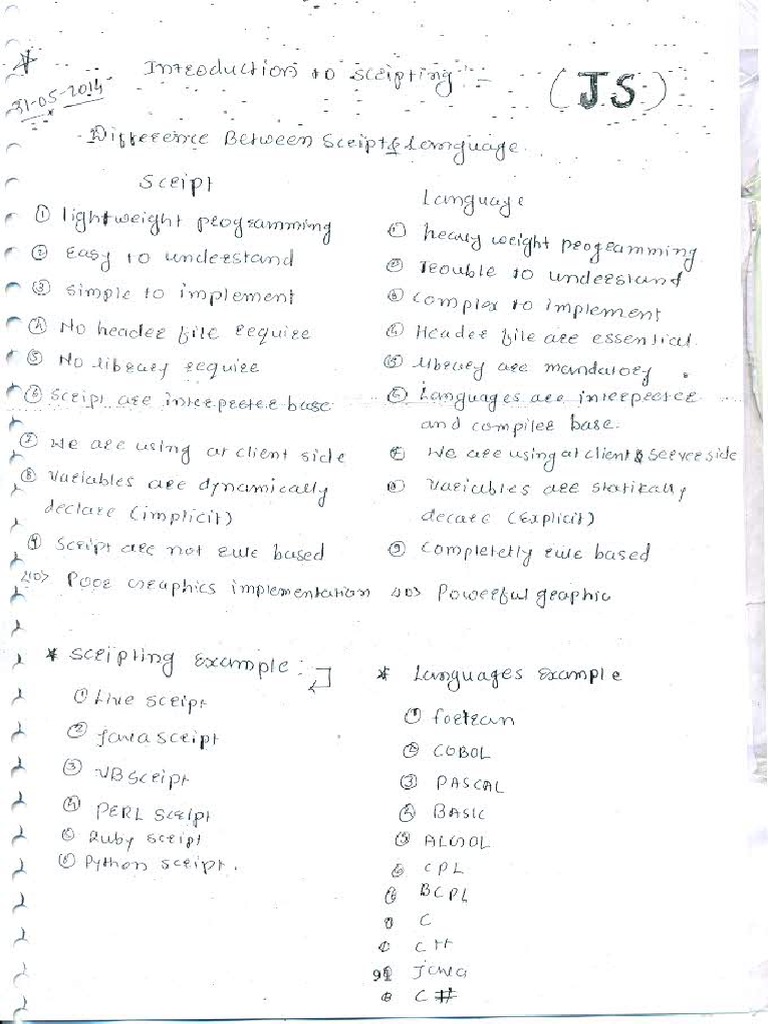 Introduction to scripting :-
(JS)
31-05-2014
Difference Between Script & Language
Script
① lightweight programming
② easy to understand
③ simple to implement
④ No header file require
⑤ No library require
⑥ Script are interpreter base
⑦ We are using at client side
⑧ Variables are dynamically
declare (implicit)
⑨ Script are not rule based
10> Poor Graphics implementation
Language
① heavy weight programming
② Trouble to understand
③ complex to implement
④ Header file are essential.
⑤ library are mandatory
⑥ Languages are interpreter
and compiler base.
⑦ We are using at client & Server side
⑧ Variables are statikally
decare (explicit)
⑨ completetly rule based
10> Powerful graphic
* Scripting Example :
① Live script
② java script
③ VBScript
④ PERL script
⑤ Ruby script
⑥ Python script.
* Languages Example
① fortran
② COBOL
③ PASCAL
④ BASIC
⑤ ALGOL
⑥ CPL
⑦ BCPL
C
C++
java
C#
91